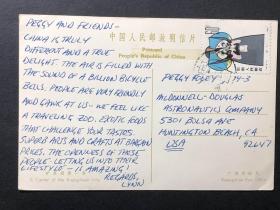 PEGGY AND FRIENDS-
CHINA IS TRULY
DIFFERENT AND A TRUE
DELIGHT. THE AIR IS FILLED WITH
THE SOUND OF A BILLION BICYCLE
BELLS. PEOPLE ARE VERY FRIENDLY
AND GAWK AT US - WE FEEL LIKE
A TRAVELING ZOO. EXOTIC FOODS
THAT CHALLENGE YOUR TASTES.
SUPERB ARTS AND CRAFTS AT BARGAIN
PRICES. THE OPENNESS OF THESE
PEOPLE - LETTING US INTO THEIR
LIFESTYLE - IS AMAZING!
REGARDS,
LYNN
中国人民邮政明信片
Postcard
People's Republic of China
PEGGY FOLEY, 14-3
MCDONNELL-DOUGLAS
ASTRONAUTICS COMPANY
5301 BOLSA AVE
HUNTINGTON BEACH, CA
USA 92647